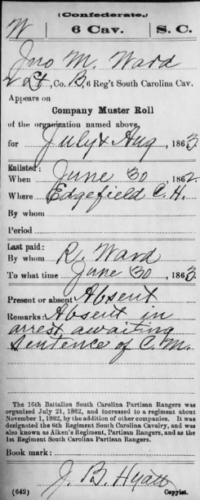 (Confederate.)
W 6 Cav. S. C.
Jno M. Ward
2 Lt, Co. B, 6 Reg't South Carolina Cav.
Appears on
Company Muster Roll
of the organization named above,
for July & Aug, 1863.
Enlisted:
When June 30, 1862.
Where Edgefield C. H.
By whom
Period
Last paid:
By whom R. Ward
To what time June 30, 1863.
Present or absent Absent
Remarks: Absent in
arrest awaiting
sentence of C. M.
The 16th Battalion South Carolina Partisan Rangers was
organized July 21, 1862, and increased to a regiment about
November 1, 1862, by the addition of other companies. It was
designated the 6th Regiment South Carolina Cavalry, and was
also known as Aiken's Regiment, Partisan Rangers, and as the
1st Regiment South Carolina Partisan Rangers.
Book mark:
J. B. Hyatt
(642) Copyist.